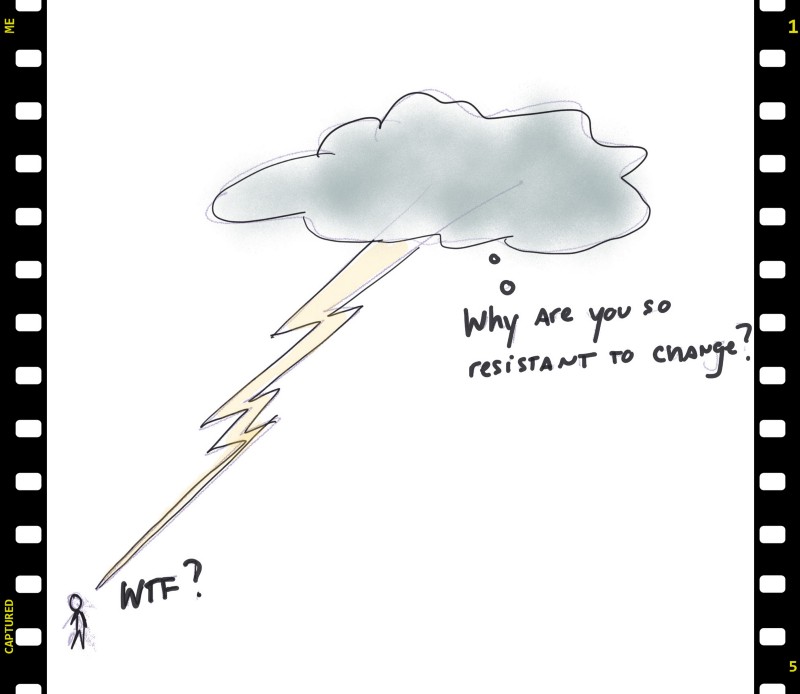 ME
1
Why are you so
resistant to change?
WTF?
CAPTURED
5